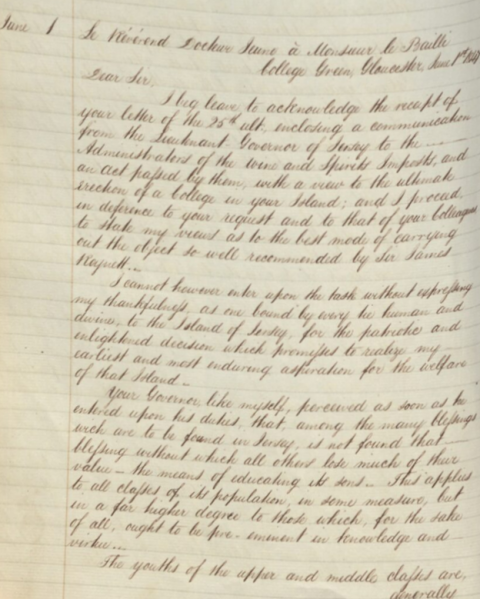 June 1 Le Révérend Docteur Jeune à Monsieur le Bailli
College Green, Gloucester June 1st
Dear Sir,
I beg leave to acknowledge the receipt of
your letter of the 25th ult. enclosing a communication
from the Lieutenant-Governor of Jersey to the ---
Administrators of the Wine and Spirits Imposts, and
an act passed by them, with a view to the ultimate
erection of a College in your Island; and I proceed
in deference to your request and to that of your Colleagues
to state my views as to the best mode of carrying
out the object so well recommended by Sir James
Reynett...
I cannot however enter upon the task without expressing
my thankfulness, as one bound by every tie human and
divine, to the Island of Jersey, for the patriotic and
enlightened decision which promises to realize my
earliest and most enduring aspiration for the welfare
of that Island...
Your Governor like myself, perceived as soon as he
entered upon his duties, that, among the many blessings
wich are to be found in Jersey, is not found that —
blessing without which all others lose much of their
value — the means of educating its sons... This applies
to all classes of its population, in some measure, but
in a far higher degree to those which, for the sake
of all, ought to be pre-eminent in knowledge and
virtue...
The youths of the upper and middle classes are,
generally